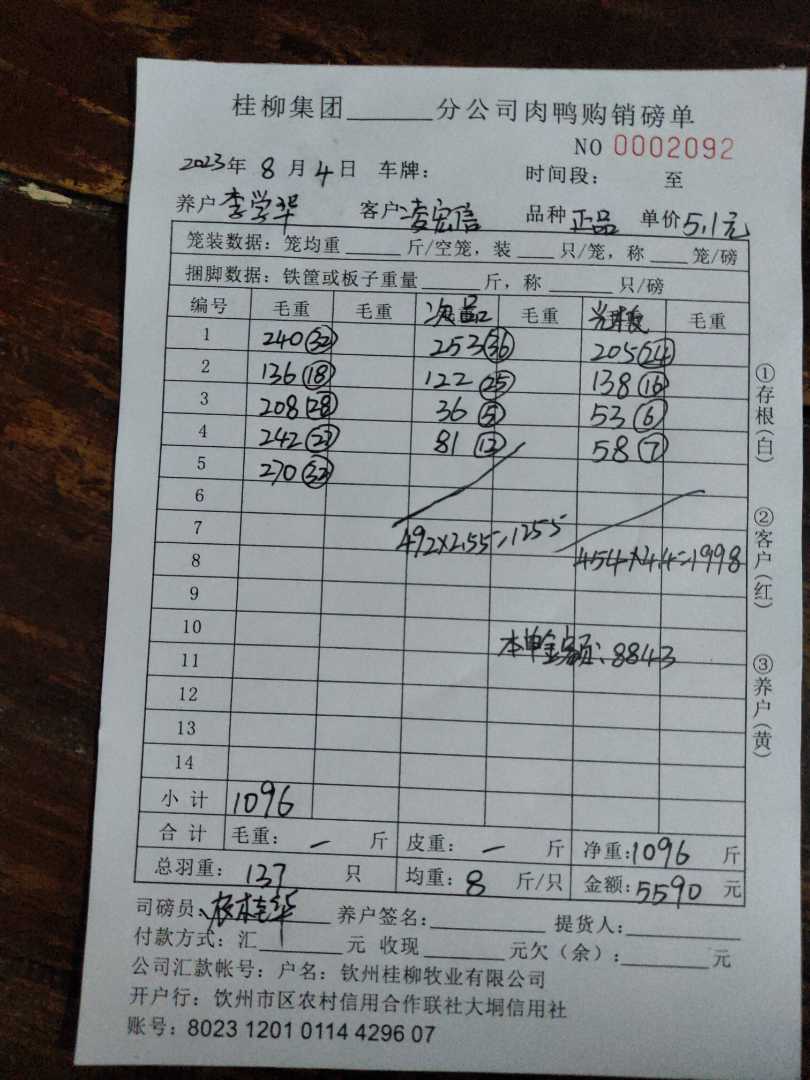 桂柳集团______分公司肉鸭购销磅单
NO 0002092
2023年 8 月 4 日 车牌： 时间段： 至
养户 李学华 客户 凌宏信 品种 正品 单价 5.1元
笼装数据：笼均重____斤/空笼，装___只/笼，称___笼/磅
捆脚数据：铁筐或板子重量____斤，称____只/磅
编号 毛重 毛重 次品 毛重 毛重
1 240 (32) 253 (36) 205 (24)
2 136 (18) 122 (25) 138 (16)
3 208 (28) 36 (5) 53 (6)
4 242 (27) 81 (12) 58 (7)
5 270 (32)
6
7 492×2.55=1255
8 454×4.4=1998
9
10 本单金额：8843
11
12
13
14
小计 1096
合计 毛重： — 斤 皮重： — 斤 净重：1096 斤
总羽重：137 只 均重：8 斤/只 金额：5590 元
司磅员： 养户签名：________ 提货人：________
付款方式：汇______元 收现______元欠（余）：______元
公司汇款帐号：户名：钦州桂柳牧业有限公司
开户行：钦州市区农村信用合作联社大垌信用社
账号：8023 1201 0114 4296 07
①存根（白）
②客户（红）
③养户（黄）